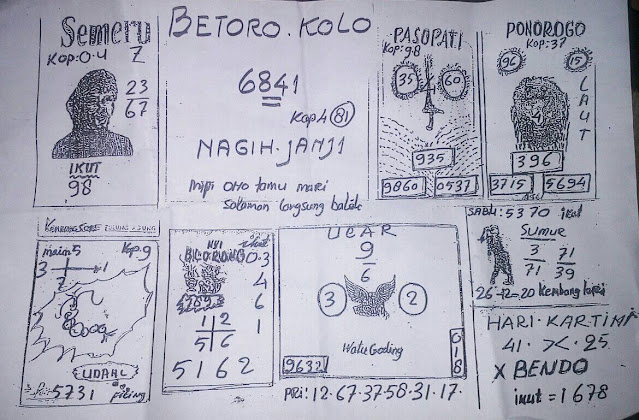 Semeru
Kop:0.4 7
23
67
IKUT
98
BETORO.KOLO
6841
Kop 4 81
NAGIH.JANJI
mipi ono tamu mari
Solomon langsung balek
PASOPATI
Kop:98
35 60
935
9860 0537
PONOROGO
Kop:37
96 15
LAUT
396
3715 5694
KEMBANG SORE TULUNG AGUNG
main 5 Kp.9
3 1
7
UDAAL
5731 piling
NYI
BLORONG 0.3
4
6
1
12
56
5162
UCAR
9
6
3 2
Watu Goding
9632
018
PRI:12.67.37.58.31.17.
SABLI:5370 ikut
SUMUR
3 71
71 39
26-12=20 Kembang
HARI.KARTIMA
41.><.25
X BENDO
ikut=1678